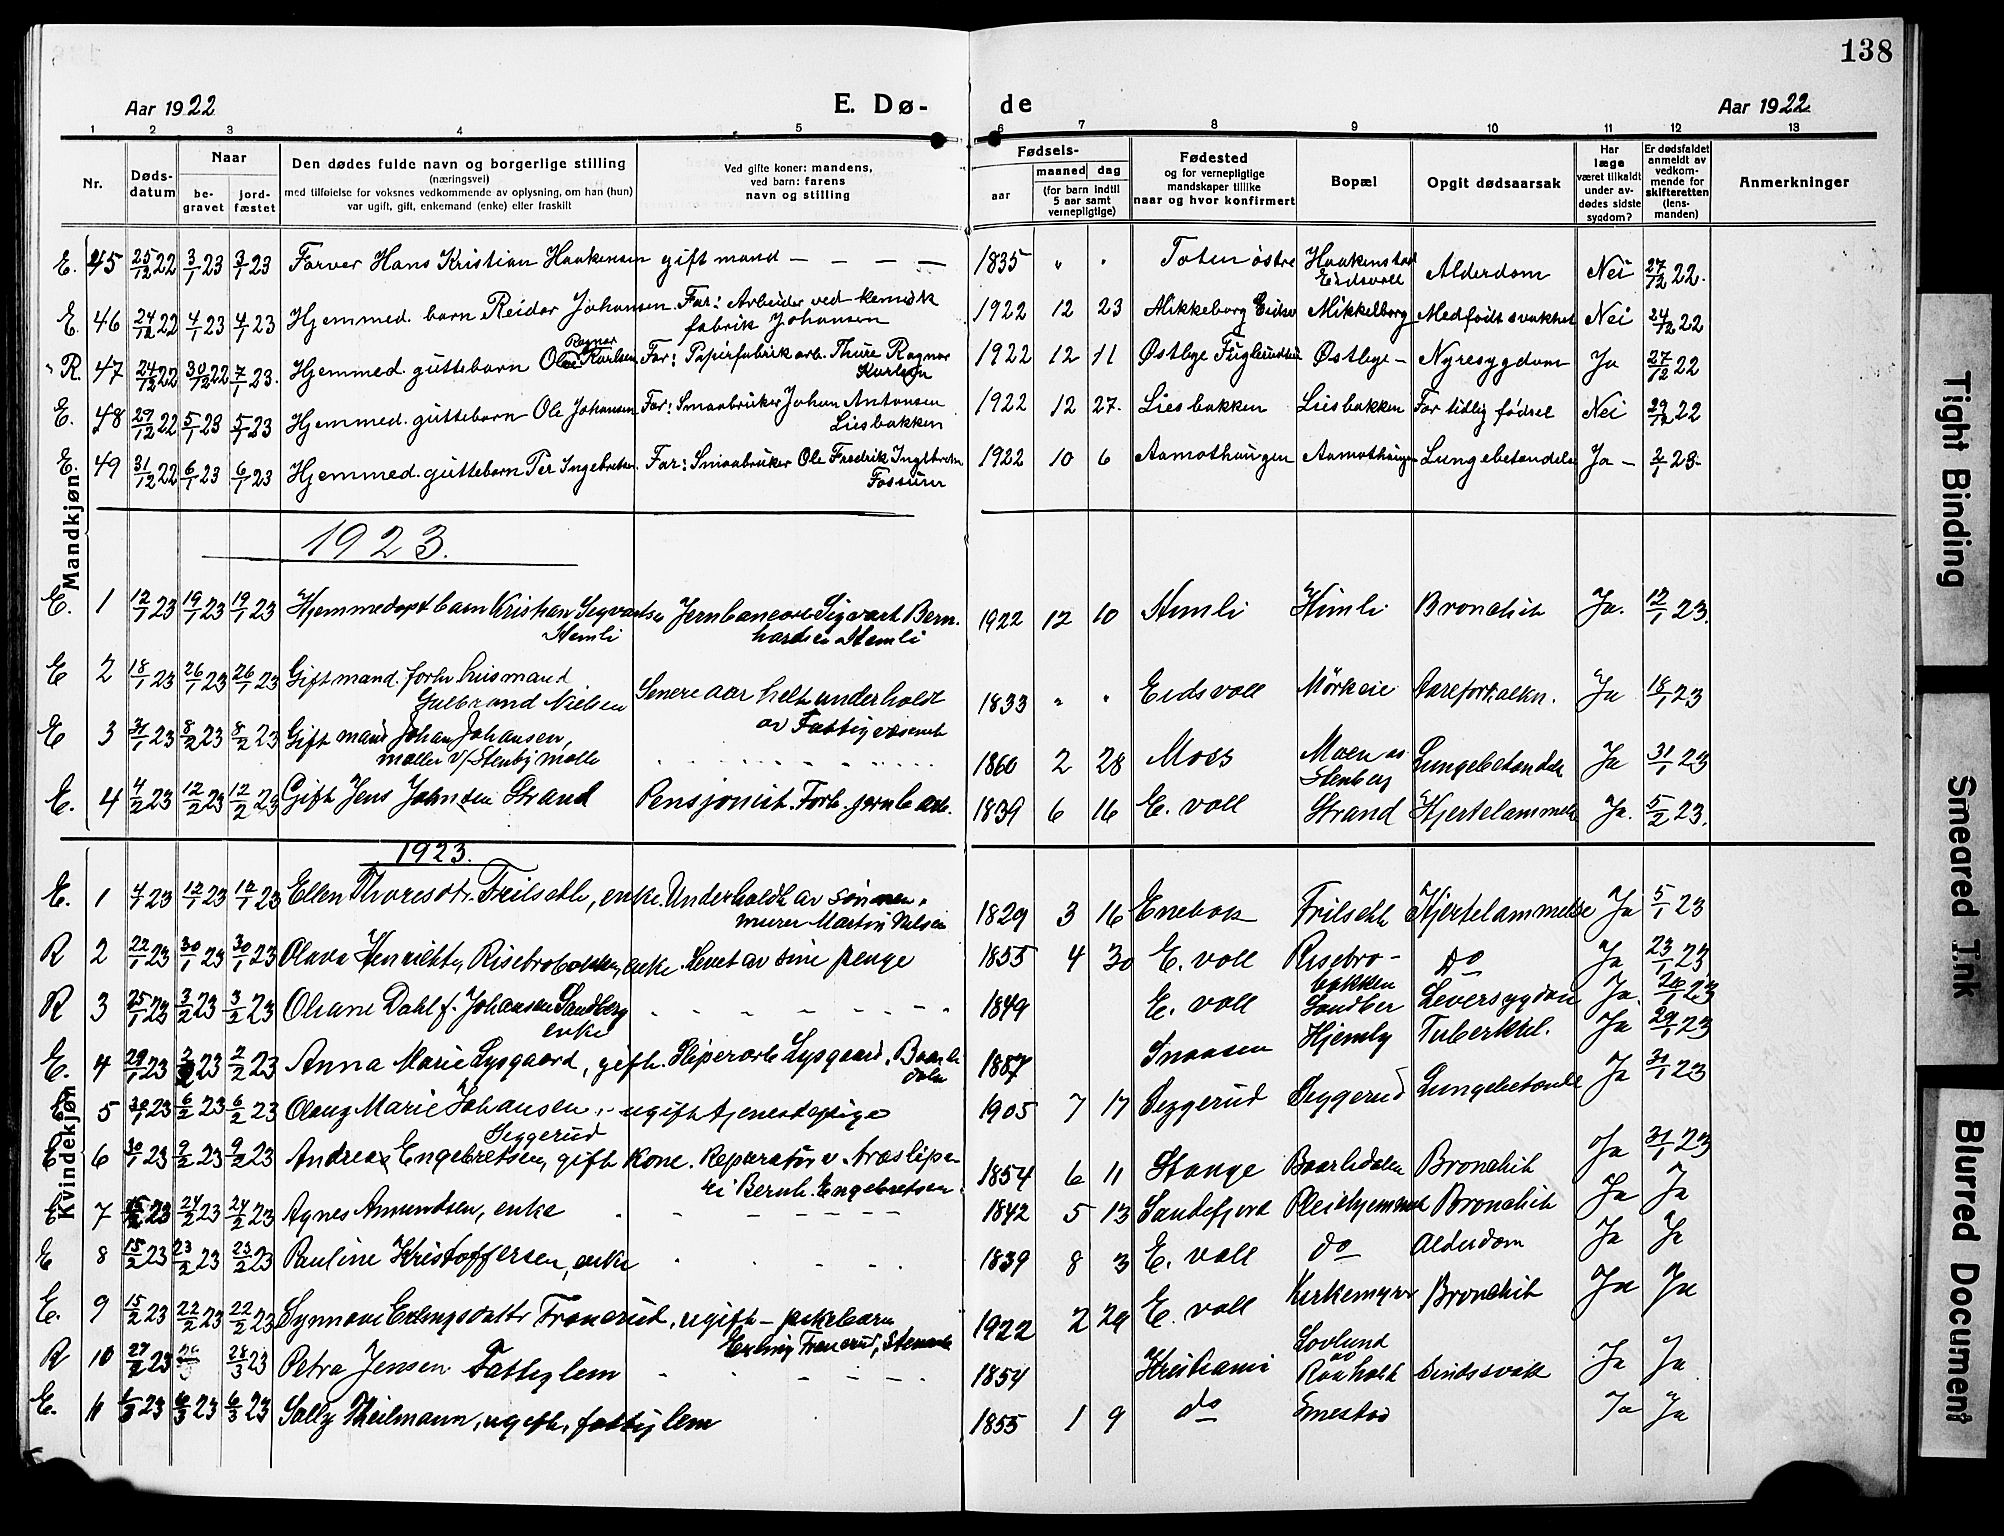 138
Aar 1922 E. Dø- de Aar 1922
1 2 3 4 5 6 7 8 9 10 11 12 13
Nr.
Døds-
datum
Naar
be-
gravet
jord-
fæstet
Den dødes fulde navn og borgerlige stilling
(næringsvei)
med tilføielse for voksnes vedkommende av oplysning, om han (hun)
var ugift, gift, enkemand (enke) eller fraskilt
Ved gifte koner: mandens,
ved barn: farens
navn og stilling
Fødsels-
aar
maaned dag
(for barn indtil
5 aar samt
vernepligtige)
Fødested
og for vernepligtige
mandskaper tillike
naar og hvor konfirmert
Bopæl
Opgit dødsaarsak
Har
læge
været tilkaldt
under av-
dødes sidste
sygdom?
Er dødsfaldet
anmeldt av
vedkom-
mende for
skifteretten
(lens-
manden)
Anmerkninger
Mandkjøn
E. 45 25/12 22 3/1 23 3/1 23 Farver Hans Kristian Haakensen gift mand — — — — 1835 " " Toten østre Haakenstad Eidsvoll Alderdom Nei 27/12 22.
E. 46 24/12 22 4/1 23 4/1 23 Hjemmed. barn Reidar Johansen Far: Arbeider ved kemisk fabrik Johansen 1922 12 23 Mikkelborg Eidsv Mikkelborg Medfødt svakhet Nei 24/12 22
R. 47 24/12 22 30/12 22 7/1 23. Hjemmed. guttebarn Ole Ragnar Karlsen Far: Papirfabrikarb. Thure Ragnar Karlsen 1922 12 11 Østbye Østbye - Nyresygdom Ja 27/12 22
E. 48 29/12 22 5/1 23 5/1 23 Hjemmed. guttebarn Ole Johansen Far: Smaabruker Johan Antonsen Liesbakken 1922 12 27. Liesbakken Liesbakken For tidlig fødsel Nei 29/12 22
E. 49 31/12 22 6/1 23 6/1 23 Hjemmed. guttebarn Per Ingebretsen. Far: Smaabruker Ole Fredrik Ingebretsen Fossum 1922 10 6 Aamothaugen Aamothaugen Lungebetendelse Ja - 2/1 23-
1923.
E. 1 12/1 23 19/1 23 19/1 23 Hjemmedøpt barn Kristian Segvartsen Hemli Jernbanearb Sigvart Bernhardsen Hemli 1922 12 10 Himli Himli Bronchit Ja. 12/1 23.
E 2 18/1 23 26/1 23 26/1 23 Gift mand. forhv husmand Gulbrand Nielsen Senere aar helt underholdt av Fattigvæsenet 1833 " " Eidsvoll Mørkeie Aareforkalkn. Ja 18/1 23
E 3 31/1 23 8/2 23 8/2 23 Gift mand Johan Johansen, møller v/ Stenbj mølle 1860 2 28 Moss Moen as Stenberg Lungebetendelse Ja 31/1 23
E. 4 4/2 23 12/2 23 12/2 23 Gift Jens Johnsen Strand Pensjonist. Forh. jernb arb. 1839 6 16 E. voll Strand Hjertelammelse Ja. 5/2 23.
1923.
Kvindekjøn
E. 1 4/1 23 12/1 23 12/1 23 Ellen Thoresdtr. Frilseth, enke. Underholdt av sønnen, murer Martin Nilsen 1829 3 16 Enebak Frilseth Hjertelammelse Ja 5/1 23
R 2 22/1 23 30/1 23 30/1 23 Olava Risebrobakken, enke. Levet av sine penge 1855 4 30 E. voll Risebro-bakken Do Ja 23/1 23
R 3 25/1 23 3/2 23 3/2 23 Oliane Dahl f. Johansen Sandberg enke 1849 E. voll Sandber Leversygdom Ja. 26/1 23
E. 4 29/1 23 2/2 23 2/2 23 Anna Marie Lysgaard, gift. Sliperarb Lysgaard, Baarlidalen 1887 Snaasen Hjemly Tuberkul. Ja 29/1 23
E 5 30/1 23 6/2 23 6/2 23 Olaug Marie Johansen Seggerud ugift tjenestepige 1905 7 17 Seggerud Seggerud Lungebetende Ja 31/1 23
E 6 30/1 23 9/2 23 9/2 23 Andrea Engebretsen, gift kone. Reparatør v. træsliperi Bernh. Engebretsen. 1854 6 11 Stange Baarlidalen Bronchit Ja 31/1 23
E 7 15/2 23 24/2 23 24/2 23 Agnes Amundsen, enke 1842 5 13 Sandefjord Pleiehjemmet Bronchit Ja Ja
E 8 15/2 23 23/2 23 23/2 23 Pauline Kristoffersen, enke 1839 8 3 E. voll do Alderdom Ja Ja
E. 9 15/2 23 22/2 23 22/2 23 Synnøve Erlingsdatter Tronerud, ugift - pikebarn Erling Tronerud, 1922 2 29 E. voll Kirkemyrr Bronchit Ja Ja
R 10 27/2 23 28/3 23 Petra Jensen Fattiglem 1854 Kristiania Lovlund av Raaholt Sindssvak Ja Ja
E. 11 1/3 23 6/3 23 6/3 23 Sally Theilmann, ugift, fattiglem 1855 1 9 do Smestad Ja Ja
Tight Binding
Smeared Ink
Blurred Document